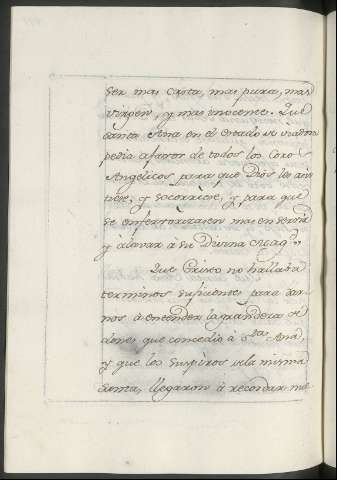 ser mas casta, mas pura, mas
virgen, y mas inocente. Que
santa Ana en el estado de viadora
pedia a favor de todos los Coros
Angelicos para que Dios les asis
tiese, y socorriese, y para que
se enfervorizasen mas en servir
y alavar á su Divina Magd.
Que Cristo no hallaba
terminos suficientes para dar-
nos á entender la grandeza de
dones que concedio á Sta. Ana,
y que los suspiros de la misma
Santa, llegaron á recordar me-